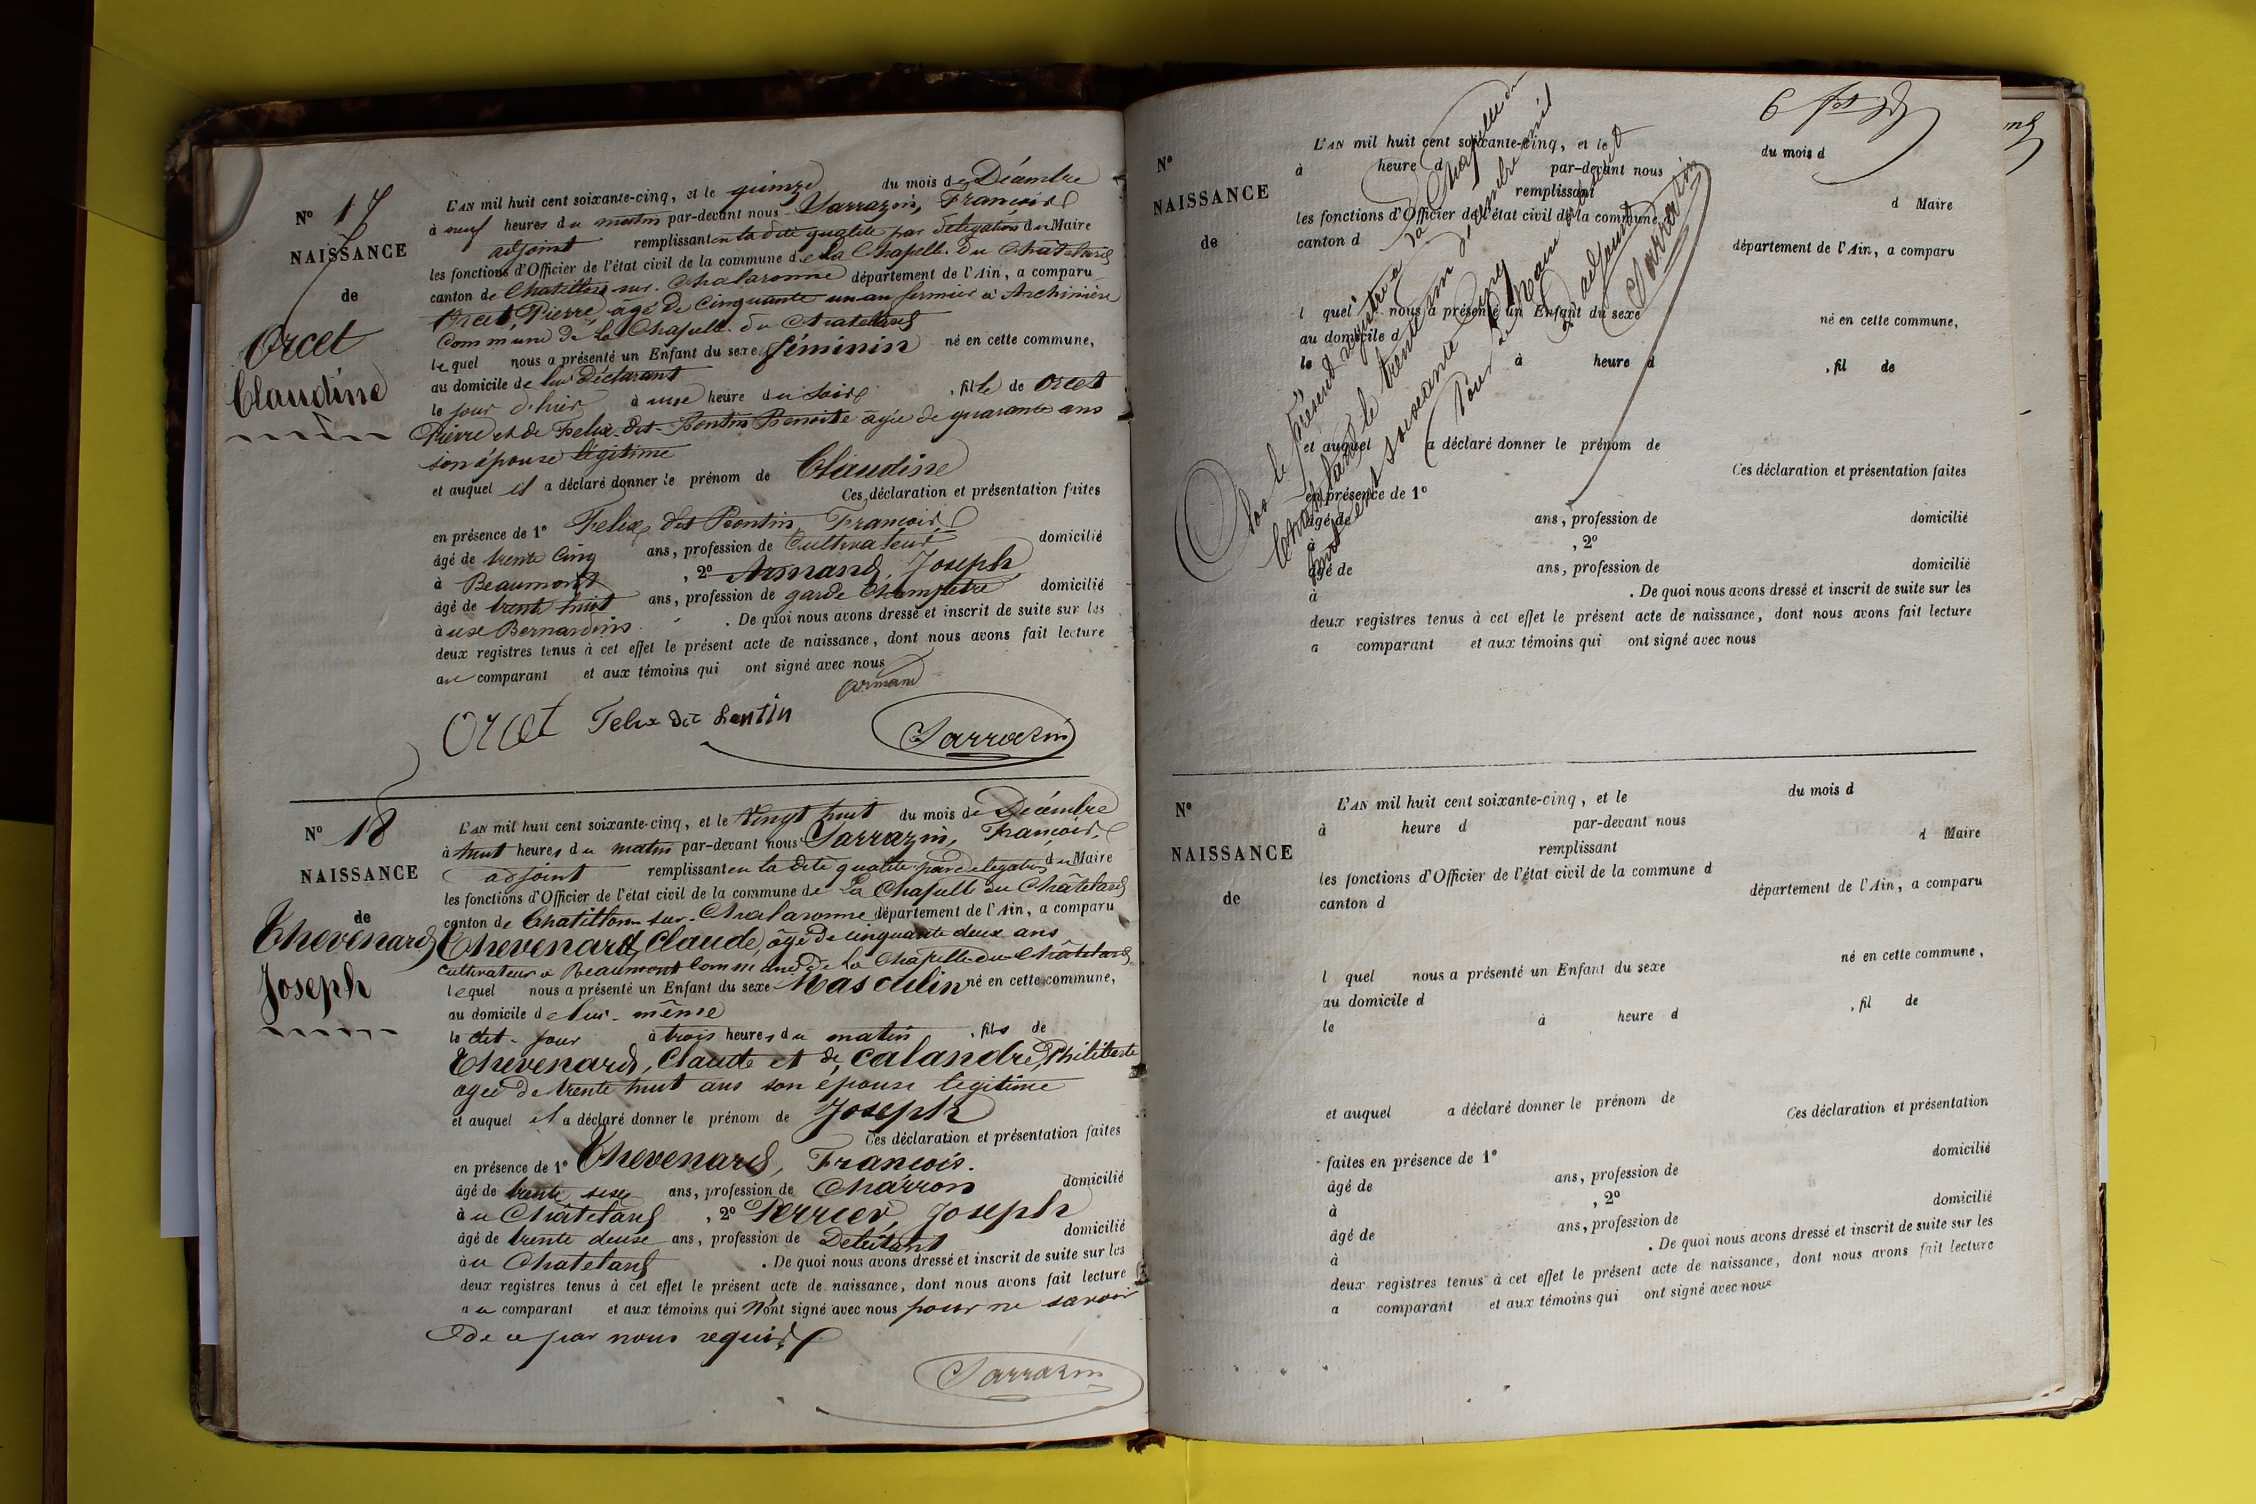 N° 17
NAISSANCE
de
Orcet
Claudine
L'AN mil huit cent soixante-cinq, et le quinze du mois de Décembre
à neuf heures du matin par-devant nous Sarrazin, François
adjoint remplissant en la dite qualité par délégation du Maire
les fonctions d'Officier de l'état civil de la commune de La Chapelle du Châtelard
canton de Chatillon sur Chalaronne département de l'Ain, a comparu
Orcet, Pierre, âgé de cinquante un an fermier à Archinière
Commune de La Chapelle du Chatelard
lequel nous a présenté un Enfant du sexe féminin né en cette commune,
au domicile de lui Déclarant
le jour d'hier à une heure du soir, fille de Orcet
Pierre et de Felix dit Pontin Benoite âgée de quarante ans
son épouse légitime
et auquel il a déclaré donner le prénom de Claudine
Ces déclaration et présentation faites
en présence de 1° Felix dit Pontin, François
âgé de trente cinq ans, profession de Cultivateur domicilié
à Beaumont, 2° Armand, Joseph
âgé de trente huit ans, profession de garde Champêtre domicilié
à use Bernardins. De quoi nous avons dressé et inscrit de suite sur les
deux registres tenus à cet effet le présent acte de naissance, dont nous avons fait lecture
au comparant et aux témoins qui ont signé avec nous
armand
Orcet Felix dit Pontin
Sarrazin
N° 18
NAISSANCE
de
Thevenard
Joseph
L'AN mil huit cent soixante-cinq, et le vingt huit du mois de Decémbre
à huit heures du matin par-devant nous Sarrazin, François
adjoint remplissant en la dite qualité par délégation du Maire
les fonctions d'Officier de l'état civil de la commune de La Chapelle du Châtelard
canton de Chatillon sur Chalaronne département de l'Ain, a comparu
Thevenard, Claude, âgé de cinquante deux ans
cultivateur à Beaumont Commune de La Chapelle du Châtelard
lequel nous a présenté un Enfant du sexe Masculin né en cette commune,
au domicile de lui-même
le dit jour à trois heures du matin, fils de
Thevenard, Claude et de Calandre, Philiberte
agée de trente huit ans son épouse légitime
et auquel il a déclaré donner le prénom de Joseph
Ces déclaration et présentation faites
en présence de 1° Thevenard, François.
âgé de trente seize ans, profession de Charron domicilié
à u Châtelard, 2° Perrier, Joseph
âgé de trente deuse ans, profession de Debitant domicilié
à u Chatelard. De quoi nous avons dressé et inscrit de suite sur les
deux registres tenus à cet effet le présent acte de naissance, dont nous avons fait lecture
au comparant et aux témoins qui N'ont signé avec nous pour ne savoir
de ce par nous requis
Sarrazin
N°
NAISSANCE
de
L'AN mil huit cent soixante-cinq, et le du mois d
à heure d par-devant nous
remplissant d Maire
les fonctions d'Officier de l'état civil de la commune
canton d département de l'Ain, a comparu
l quel nous a présenté un Enfant du sexe né en cette commune,
au domicile d
le à heure d , fil de
et auquel a déclaré donner le prénom de
Ces déclaration et présentation faites
en présence de 1°
âgé de ans, profession de domicilié
à , 2°
âgé de ans, profession de domicilié
à . De quoi nous avons dressé et inscrit de suite sur les
deux registres tenus à cet effet le présent acte de naissance, dont nous avons fait lecture
a comparant et aux témoins qui ont signé avec nous
Clos le présent registre à la Chapelle du
Chatelard le trente un décembre mil
huit cent soixante cinq
Pour le Maire
adjoint
Sarrazin
N°
NAISSANCE
de
L'AN mil huit cent soixante-cinq, et le du mois d
à heure d par-devant nous
remplissant d Maire
les fonctions d'Officier de l'état civil de la commune d
canton d département de l'Ain, a comparu
l quel nous a présenté un Enfant du sexe né en cette commune,
au domicile d
le à heure d , fil de
et auquel a déclaré donner le prénom de
Ces déclaration et présentation
faites en présence de 1°
âgé de ans, profession de domicilié
à , 2°
âgé de ans, profession de domicilié
à . De quoi nous avons dressé et inscrit de suite sur les
deux registres tenus à cet effet le présent acte de naissance, dont nous avons fait lecture
a comparant et aux témoins qui ont signé avec nous